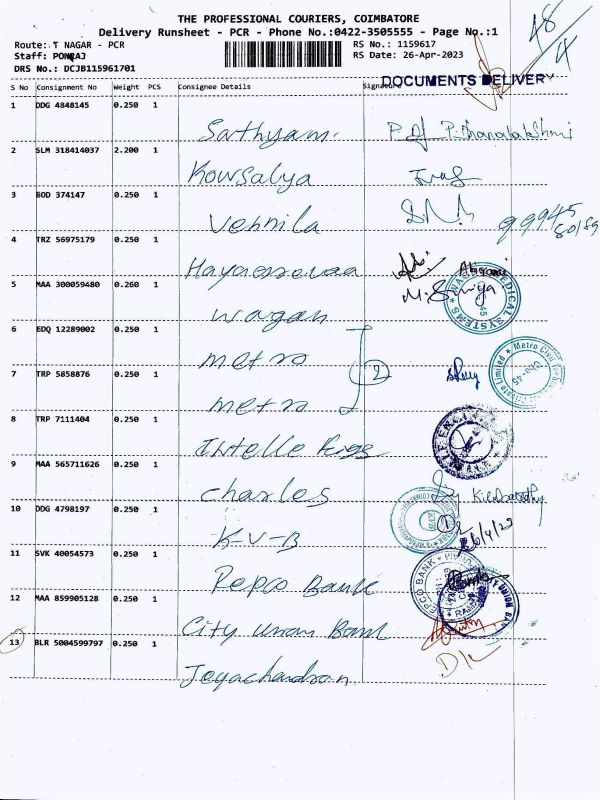 THE PROFESSIONAL COURIERS, COIMBATORE
Delivery Runsheet - PCR - Phone No.:0422-3505555 - Page No.:1
48/4
Route: T NAGAR - PCR
RS No.: 1159617
Staff: PONRAJ
RS Date: 26-Apr-2023
DRS No.: DCJB115961701
DOCUMENTS DELIVERY
S No Consignment No Weight PCS Consignee Details Signature
1 DDG 4848145 0.250 1
Sathyam.
2 SLM 318414037 2.200 1
Kowsalya
3 GOD 374147 0.250 1
Vennila
99945
4 TRZ 56975179 0.250 1
5 MAA 300059480 0.260 1
wagan
6 EDQ 12289002 0.250 1
metro
2
7 TRP 5858876 0.250 1
metro
8 TRP 7111404 0.250 1
9 MAA 565711626 0.250 1
charles
10 DDG 4798197 0.250 1
K-V-B
26/4/23
11 SVK 40054573 0.250 1
Repco Bank
12 MAA 859905128 0.250 1
City Union Bank
13 BLR 5004599797 0.250 1
Jeyachandran